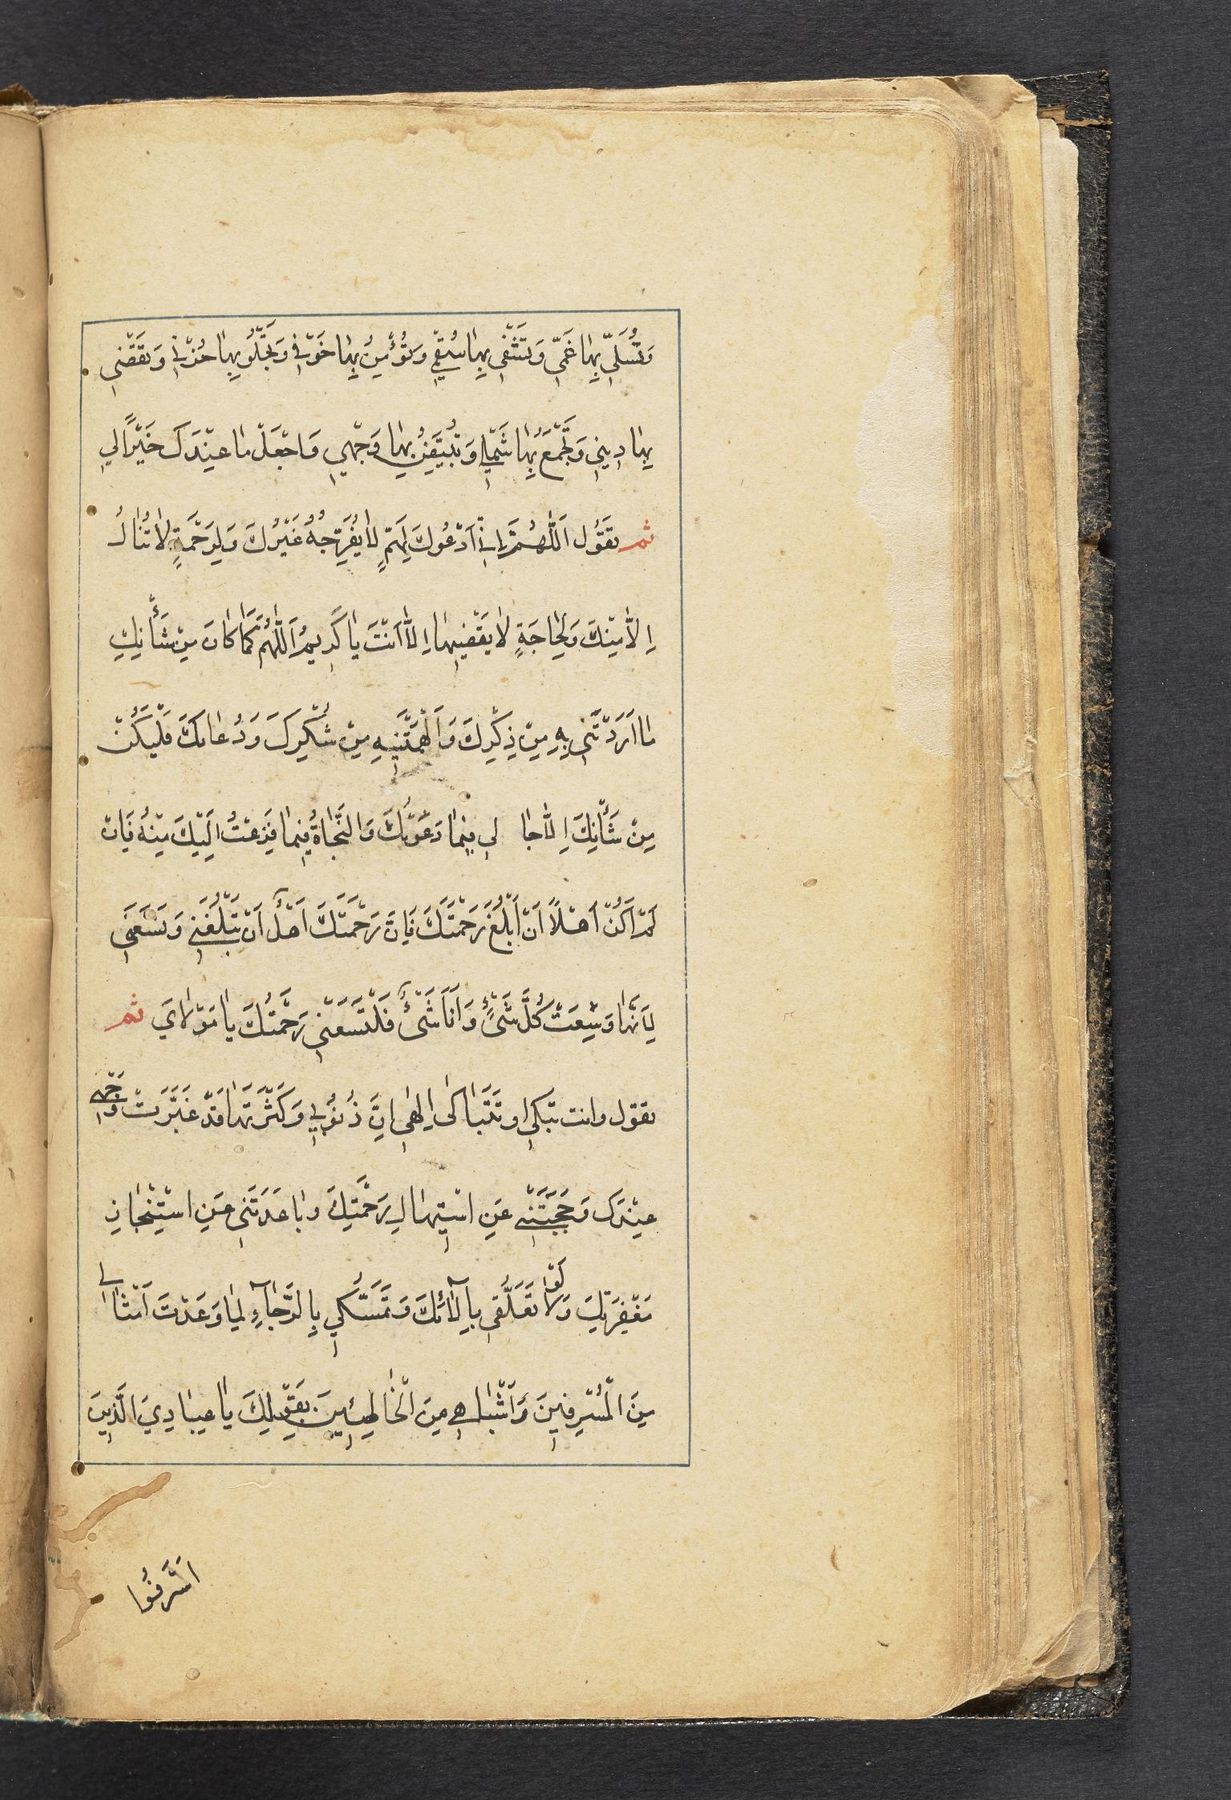 وَتُسَلِّيَ بِهَا غَمِّي وَتَشْفِيَ بِهَا سُقْمِي وَتُؤْمِنُ بِهَا خَوْفِي وَتَجْلُوَ بِهَا حُزْنِي وَتَقْضِيَ
بِهَا دِينِي وَتَجْمَعُ بِهَا شَمْلِي وَتُبَيِّضُ بِهَا وَجْهِي وَاجْعَلْ مَا عِنْدَكَ خَيْرًا لِي
ثم تقَوُل اَللّٰهُمَّ اِنِّي اَدْعُوكَ لِهَمٍّ لَا يُفَرِّجُهُ غَيْرُكَ وَلِرَحْمَةٍ لَا تُنَالُ
اِلَّا مِنْكَ وَلِحَاجَةٍ لَا يَقْضِيهَا اِلَّا اَنْتَ يَا كَرِيمُ اَللّٰهُمَّ كَمَا كَانَ مِنْ شَأْنِكَ
مَا اَرَدْتَنِي بِهِ مِنْ ذِكْرِكَ وَاَلْهَمْتَنِيهِ مِنْ شُكْرِكَ وَدُعَائِكَ فَلْيَكُنْ
مِنْ شَأْنِكَ اِلَّاجَا لِي فِيمَا دَعَوْتُكَ وَالنَّجَاةُ فِيمَا فَزِعْتُ اِلَيْكَ مِنْهُ فَاِنْ
لَمْ اَكُنْ اَهْلًا اَنْ اَبْلُغَ رَحْمَتَكَ فَاِنَّ رَحْمَتَكَ اَهْلٌ اَنْ تَبْلُغَنِي وَتَسَعَنِي
لِاَنَّهَا وَسِعَتْ كُلَّ شَيْءٍ وَاَنَا شَيْءٌ فَلْتَسَعْنِي رَحْمَتُكَ يَا مَوْلَايَ ثم
تقول وانت تبكي او تَتَبَاكَى اِلٰهِي اِنَّ ذُنُوبِي وَكَثْرَتَهَا قَدْ غَبَّرَتْ وَجْهِي
عِنْدَكَ وَحَجَبَتْنِي عَنِ اسْتِيهَالِ رَحْمَتِكَ وَبَاعَدَتْنِي عَنِ اسْتِنْجَازِ
مَغْفِرَتِكَ وَلَوْلَا تَعَلُّقِي بِآلَائِكَ وَتَمَسُّكِي بِالرَّجَاءِ لِمَا وَعَدْتَ اَمْثَالِي
مِنَ الْمُسْرِفِينَ وَاَشْبَاهِي مِنَ الْخَاطِئِينَ بِقَوْلِكَ يَا عِبَادِيَ الَّذِينَ
اَسْرَفُوا